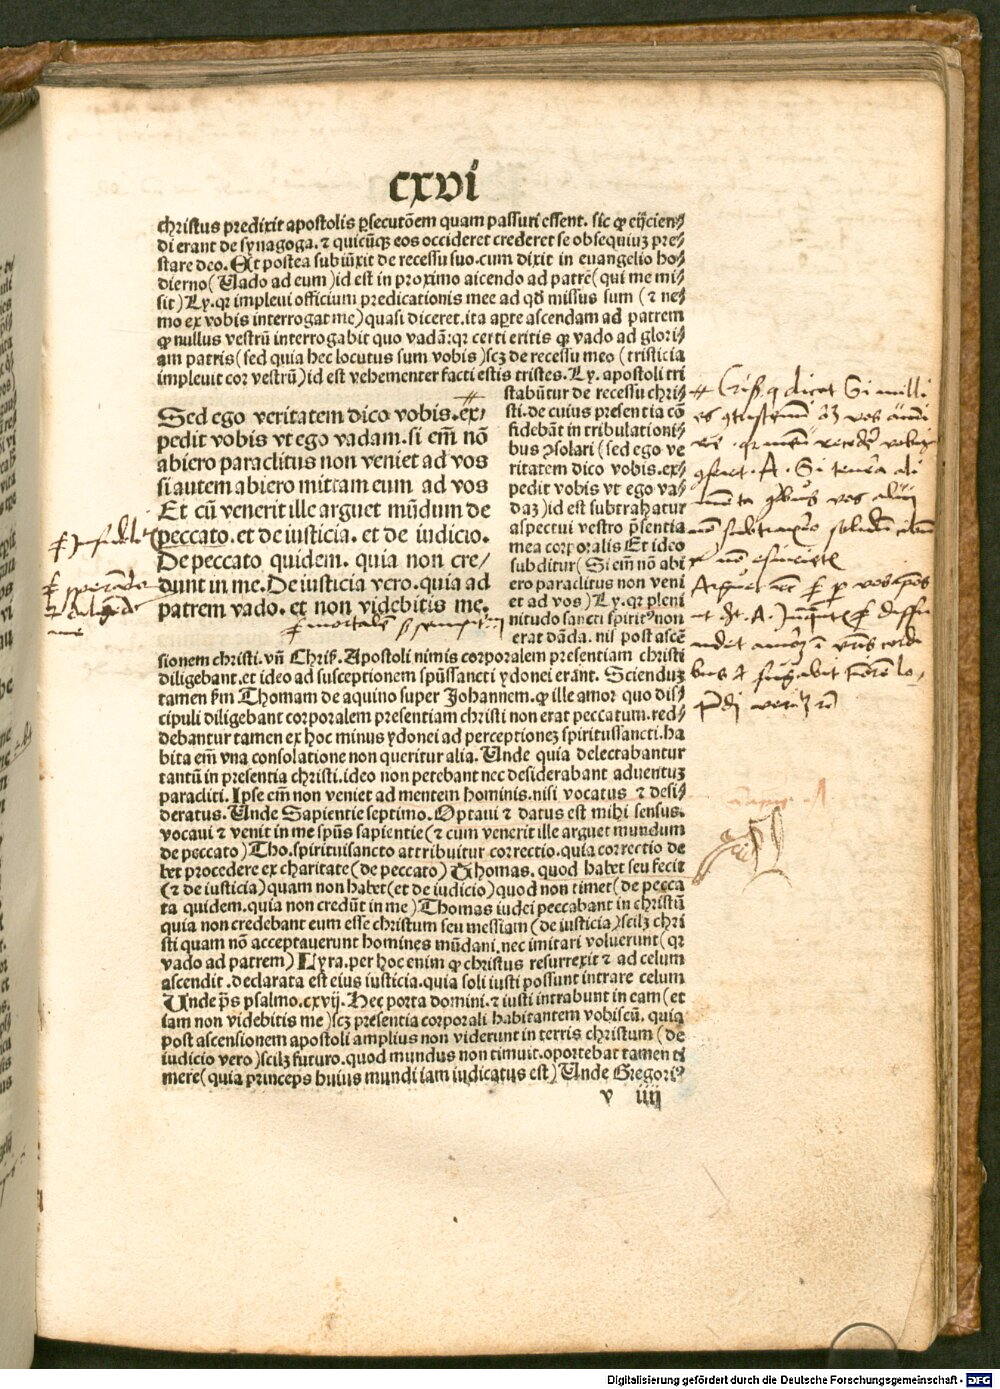 cxvi
christus predixit apostolis ꝑsecutōem quam passuri essent. sic ꝙ eijcien⸗
di erant de synagoga. ⁊ quicūqꝫ eos occideret crederet se obsequiuꝫ pre⸗
stare deo. Et postea subiūxit de recessu suo. cum dixit in euangelio ho⸗
dierno (Uado ad eum) id est in proximo aicendo ad patrē (qui me mi⸗
sit) Ly. qꝛ impleui officium predicationis mee ad qd̄ missus sum (⁊ ne⸗
mo ex vobis interrogat me) quasi diceret. ita aꝑte ascendam ad patrem
ꝙ nullus vestrū interrogabit quo vadā: qꝛ certi eritis ꝙ vado ad glori⸗
am patris (sed quia hec locutus sum vobis) scꝫ de recessu meo (tristicia
impleuit cor vestrū) id est vehementer facti estis tristes. Ly. apostoli tri
stabūtur de recessu chri⸗
sti. de cuius presentia cō
fidebāt in tribulationi⸗
bus ꝯsolari (sed ego ve
ritatem dico vobis. ex⸗
pedit vobis vt ego va⸗
daꝫ) id est subtrahatur
aspectui vestro p̄sentia
mea corporalis Et ideo
subditur (Si em̄ nō abi
ero paraclitus non veni
et ad vos) Ly. qꝛ pleni
nitudo sancti spiritꝰ non
erat dāda. nisi post ascē
Sed ego veritatem dico vobis. ex⸗
pedit vobis vt ego vadam. si em̄ nō
abiero paraclitus non veniet ad vos
si autem abiero mittam eum ad vos
Et cū venerit ille arguet mūdum de
peccato. et de iusticia. et de iudicio.
De peccato quidem. quia non cre⸗
dunt in me. De iusticia vero. quia ad
patrem vado. et non videbitis me.
sionem christi. vn̄ Chriß. Apostoli nimis corporalem presentiam christi
diligebant. et ideo ad susceptionem spūssancti ydonei erānt. Scienduꝫ
tamen ẜm Thomam de aquino super Johannem. ꝙ ille amor quo dis⸗
cipuli diligebant corporalem presentiam christi non erat peccatum. red⸗
debantur tamen ex hoc minus ydonei ad perceptioneꝫ spiritussancti. ha
bita em̄ vna consolatione non queritur alia. Unde quia delectabantur
tantū in presentia christi. ideo non petebant nec desiderabant aduentuꝫ
paracliti. Ipse em̄ non veniet ad mentem hominis. nisi vocatus ⁊ desi⸗
deratus. Unde Sapientie septimo. Optaui ⁊ datus est mihi sensus.
vocaui ⁊ venit in me spūs sapientie (⁊ cum venerit ille arguet mundum
de peccato) Tho. spirituisancto attribuitur correctio. quia correctio de
bet procedere ex charitate (de peccato) Thomas. quod habet seu fecit
(⁊ de iusticia) quam non habet (et de iudicio) quod non timet (de pecca
to quidem. quia non credūt in me) Thomas iudei peccabant in christū
quia non credebant eum esse christum seu messiam (de iusticia) scilꝫ chri
sti quam nō acceptauerunt homines mūdani. nec imitari voluerunt (qꝛ
vado ad patrem) Lyra. per hoc enim ꝙ christus resurrexit ⁊ ad celum
ascendit. declarata est eius iusticia. quia soli iusti possunt intrare celum
Unde p̄s psalmo. cxvij. Hec porta domini. ⁊ iusti intrabunt in eam (et
iam non videbitis me) scꝫ presentia corporali habitantem vobiscū. quia
post ascensionem apostoli amplius non viderunt in terris christum (de
iudicio vero) scilꝫ futuro. quod mundus non timuit. oportebat tamen ti
mere (quia princeps huius mundi iam iudicatus est) Unde Gregoriꝰ
v iiij
Digitalisierung gefördert durch die Deutsche Forschungsgemeinschaft - DFG